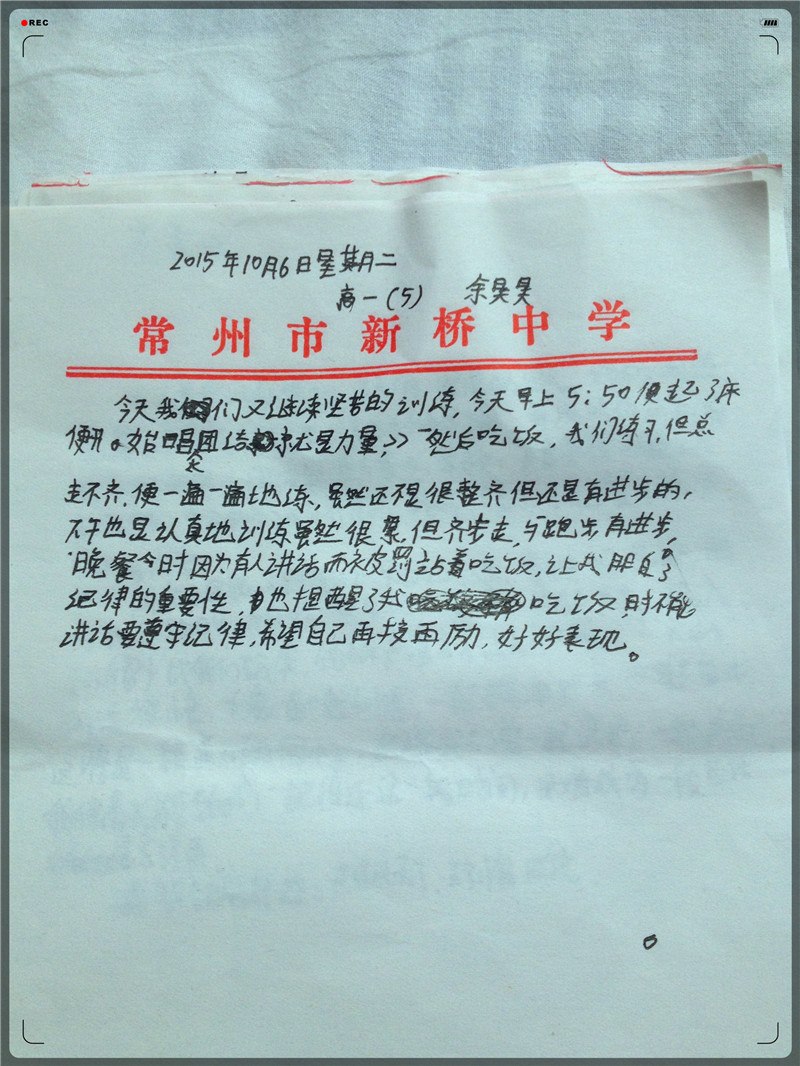 REC
2015年10月6日星期二
高一(5) 余昊昊
常州市新桥中学
今天我们又继续坚苦的训练,今天早上5:50便起了床
便开始唱《团结就是力量》然后吃饭,我们练习,但总
走不齐,便一遍一遍地练,虽然还不是很整齐但还是有进步的,
下午也是认真地训练虽然很累,但齐步走,与跑步有进步,
晚餐今时因为有人讲话而被罚站着吃饭,让我明白了
纪律的重要性,也提醒了我吃饭时不能
讲话要遵守纪律,希望自己再接再励,好好表现。